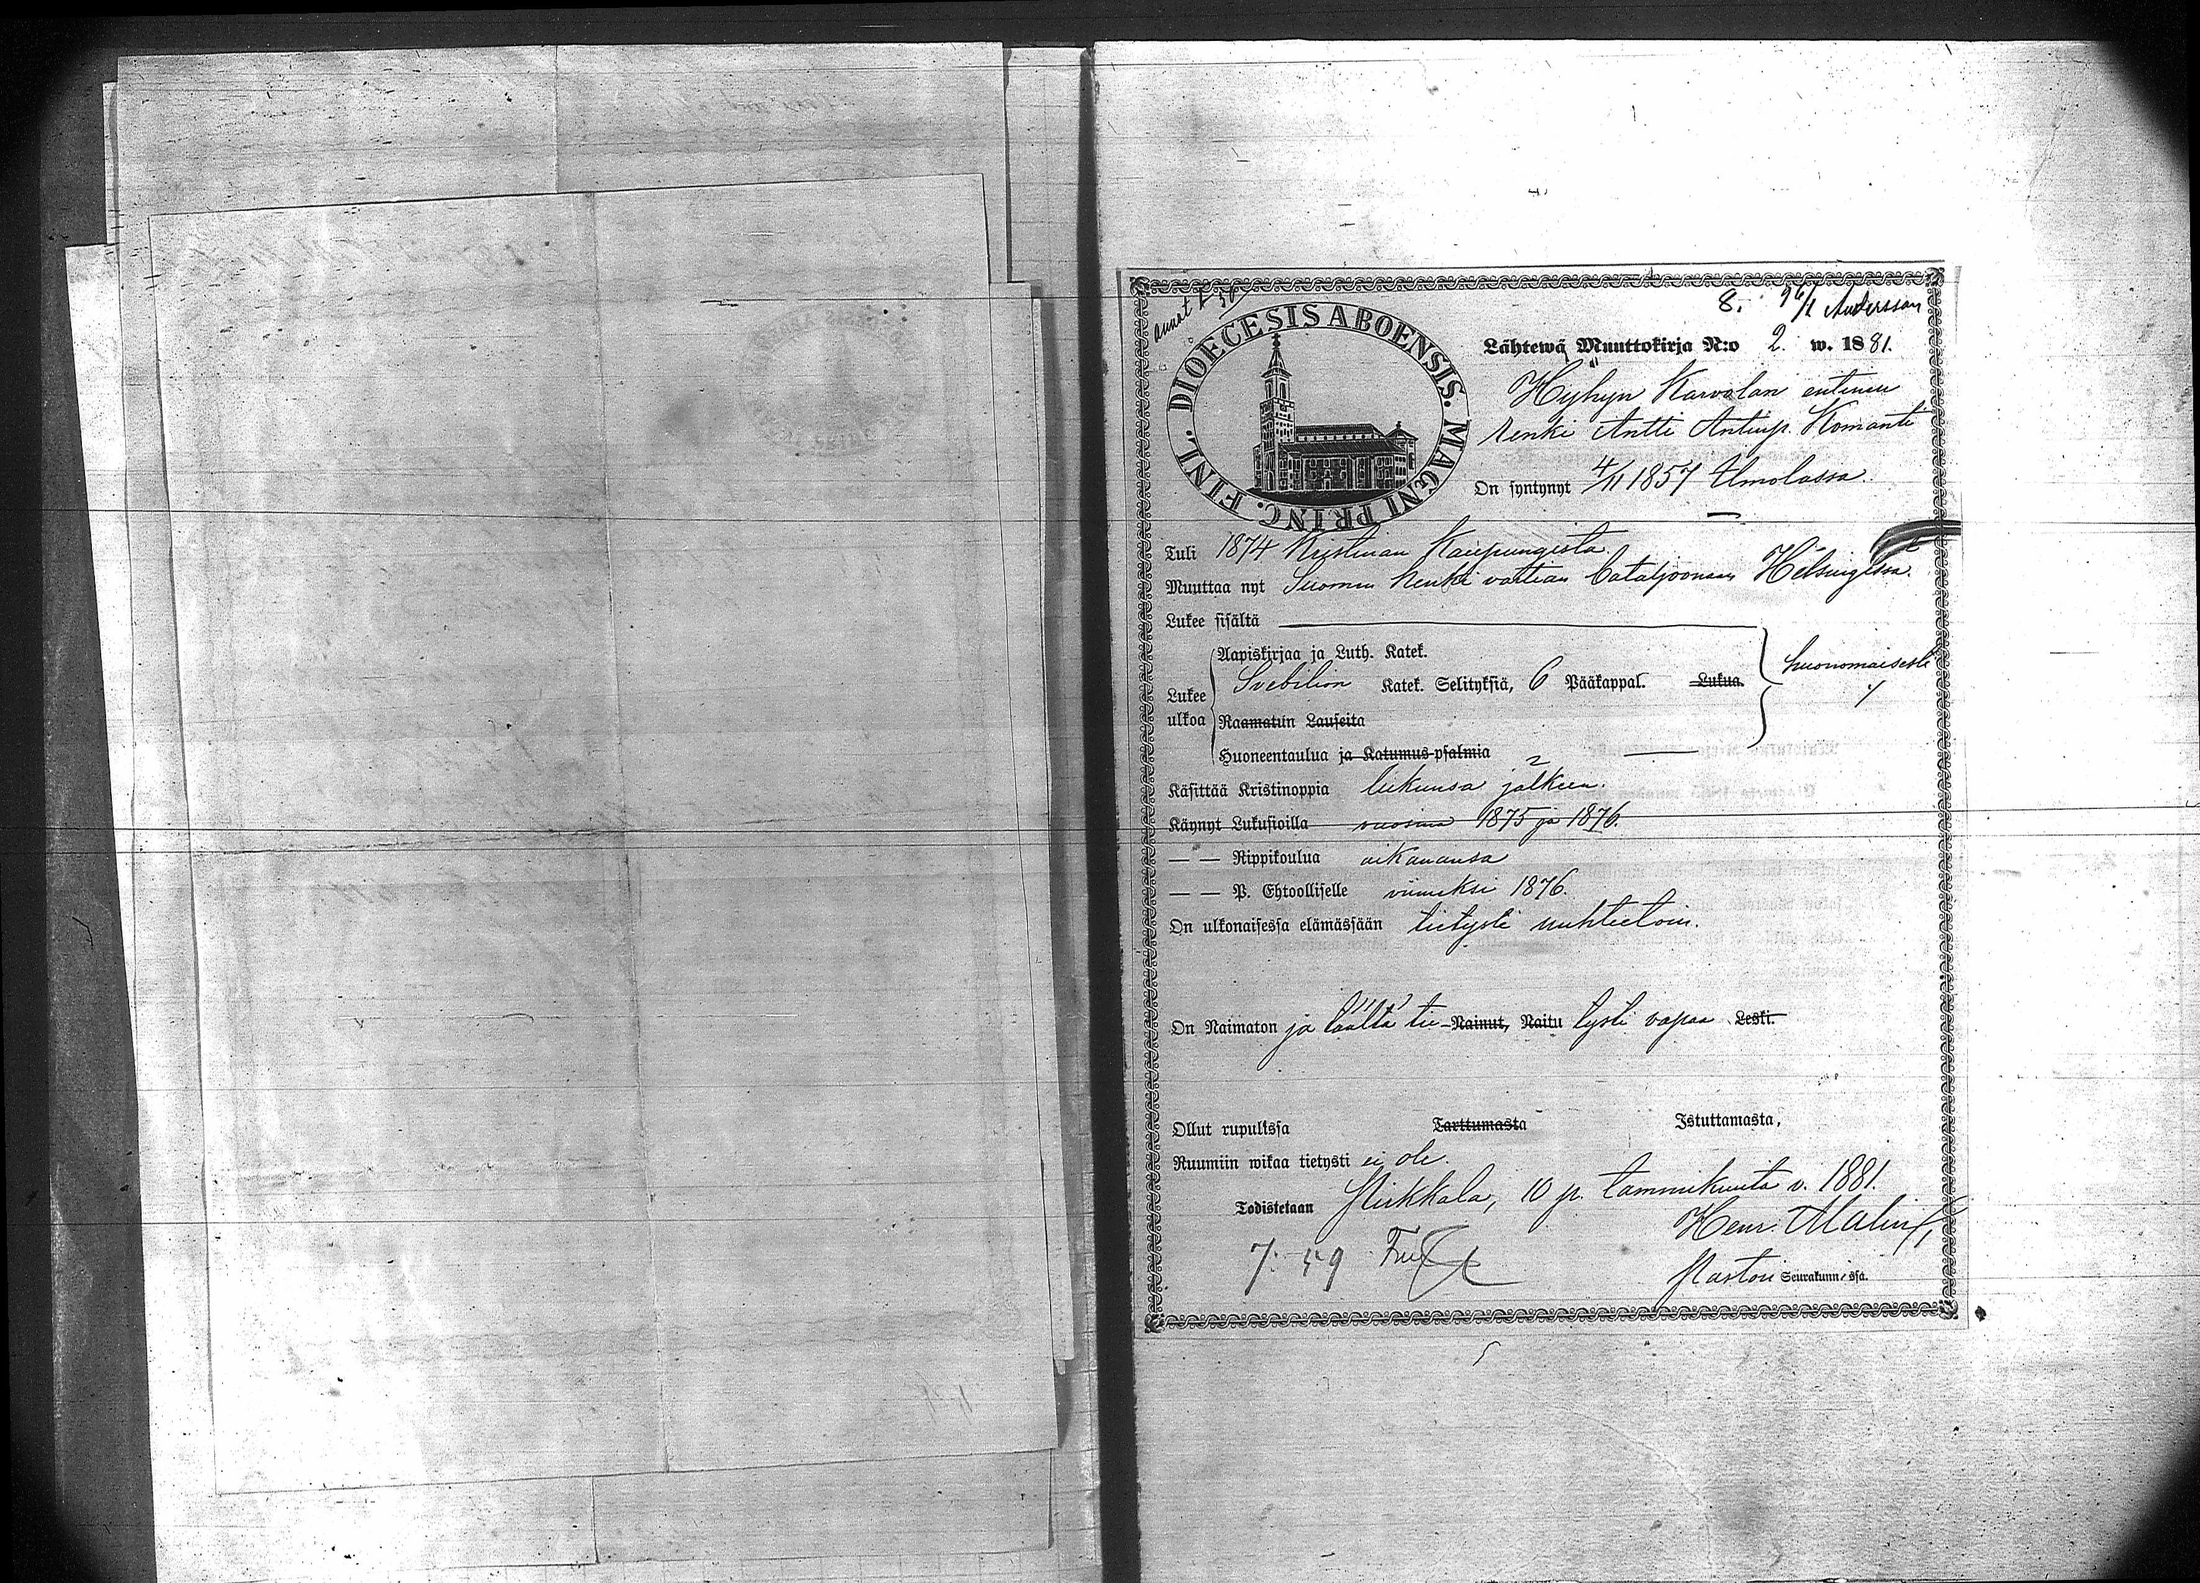 8. 26/1 Andersson
DIOECESIS ABOENSIS. MAGNI PRINC. FINL.
Lähtewä Muuttokirja N:o 2. w. 1881.
Hyhyn Karvolan entinen
renki Antti Antinp. Komanti
On syntynyt 4/11 1857 Ilmolassa.
Tuli 1874 Kristinan Kaupungista.
Muuttaa nyt Suomen henki vartian bataljoonaan Helsingissä.
Lukee sisältä
Aapiskirjaa ja Luth. Katek.
Lukee ulkoa
Svebilion Katek. Selityksiä, 6 Pääkappal. Lukua.
huonomaisesti
Raamatun Lauseita
Huoneentaulua ja Katumus-psalmia
Käsittää Kristinoppia lukunsa jälkeen.
Käynyt Lukusioilla vuosina 1875 ja 1876.
— — Rippikoulua aikanansa
— — P. Ehtoolliselle viimeksi 1876.
On ulkonaisessa elämässään tietysti nuhteetoin.
On Naimaton ja täältä tie- Nainut, Naitu tysti vapaa Leski.
Ollut rupulissa Tarttumasta Istuttamasta,
Ruumiin wikaa tietysti ei ole.
Todistetaan Pirkkala, 10 p. tammikuuta v. 1881.
Henr. Malin
7. 59
Pastori Seurakunnissa.